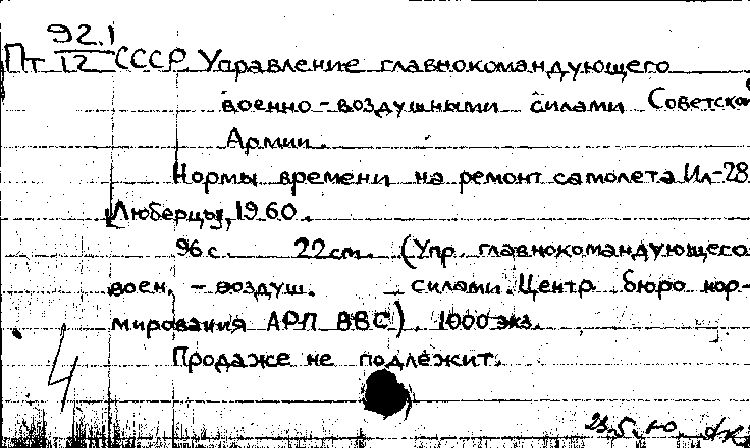 92.1
Пт 12 СССР. Управление главнокомандующего
военно-воздушными силами Советской
Армии.
Нормы времени на ремонт самолета Ил-28
Люберцы, 1960.
96 с. 22 cm. (Упр. главнокомандующего
воен. - воздуш. силами. Центр. бюро нор-
мирования АРП ВВС). 1000 экз.
Продаже не подлежит.
4